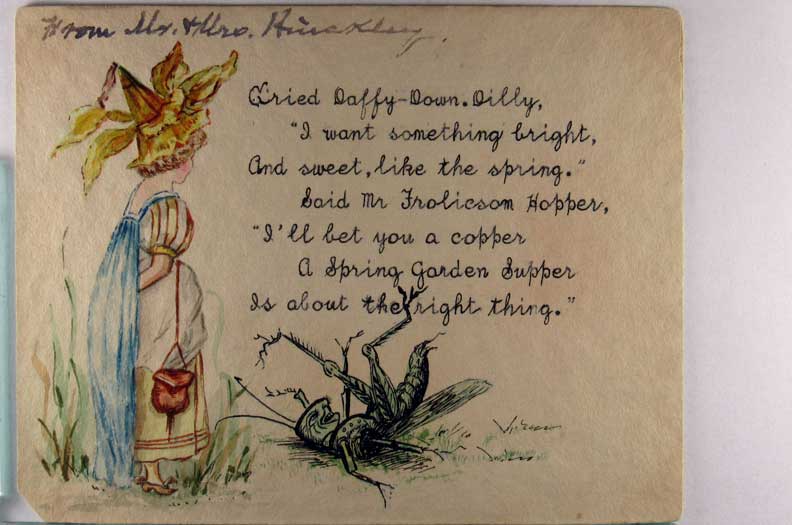 From Mr. & Mrs. Hinckley.
Cried Daffy-Down.Dilly,
"I want something bright,
And sweet, like the spring."
Said Mr Frolicsom Hopper,
"I'll bet you a copper
A Spring Garden Supper
Is about the right thing."